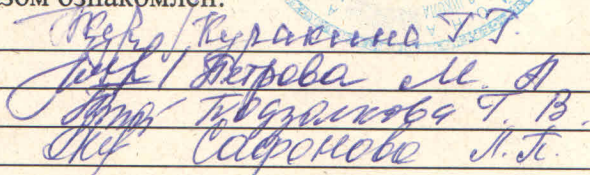 зом ознакомлен:
Куракина Г. Г.
Петрова М. А
Подзолкова Г. В.
Сафонова Л. П.